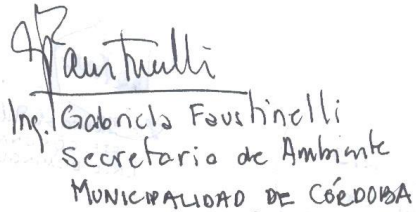 Faustinelli
Ing. Gabriela Faustinelli
Secretaria de Ambiente
MUNICIPALIDAD DE CÓRDOBA